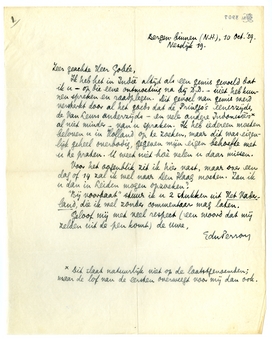 Bergen Binnen (N.H.), 10 Oct. '39.
Nesdijk 19.
Zeer geachte Heer Gobée,
Ik heb het in Indië altijd als een gemis gevoeld dat
ik u – op die eene ontmoeting na bij D.D. – niet heb kun-
nen spreken en raadplegen. Dit gevoel van gemis werd
versterkt door al het goeds dat de Pringgo's eenerzijds,
de Van Leurs anderzijds – en vele andere Indonesiërs*
al niet minder – van u spraken. Ik had iedereen moeten
beloven u in Holland op te zoeken, maar dit was eigen-
lijk geheel overbodig, gegeven mijn eigen behoefte met
u te praten. U moet niet veel
Voor het oogenblik zit ik hier vast, maar over een
dag of 14 zal ik wel naar Den Haag moeten. Kan ik
u dan in Leiden mogen opzoeken?
"Bij voorbaat" stuur ik u 2 stukken uit Het Vader-
land, die ik wel zonder commentaar mag laten.
Geloof mij met veel respect (een woord dat mij
zelden uit de pen komt) de uwe,
EduPerron
* Dit slaat natuurlijk niet op de laatstgenoemden;
maar de lof van de eersten overweegt voor mij dan ook.